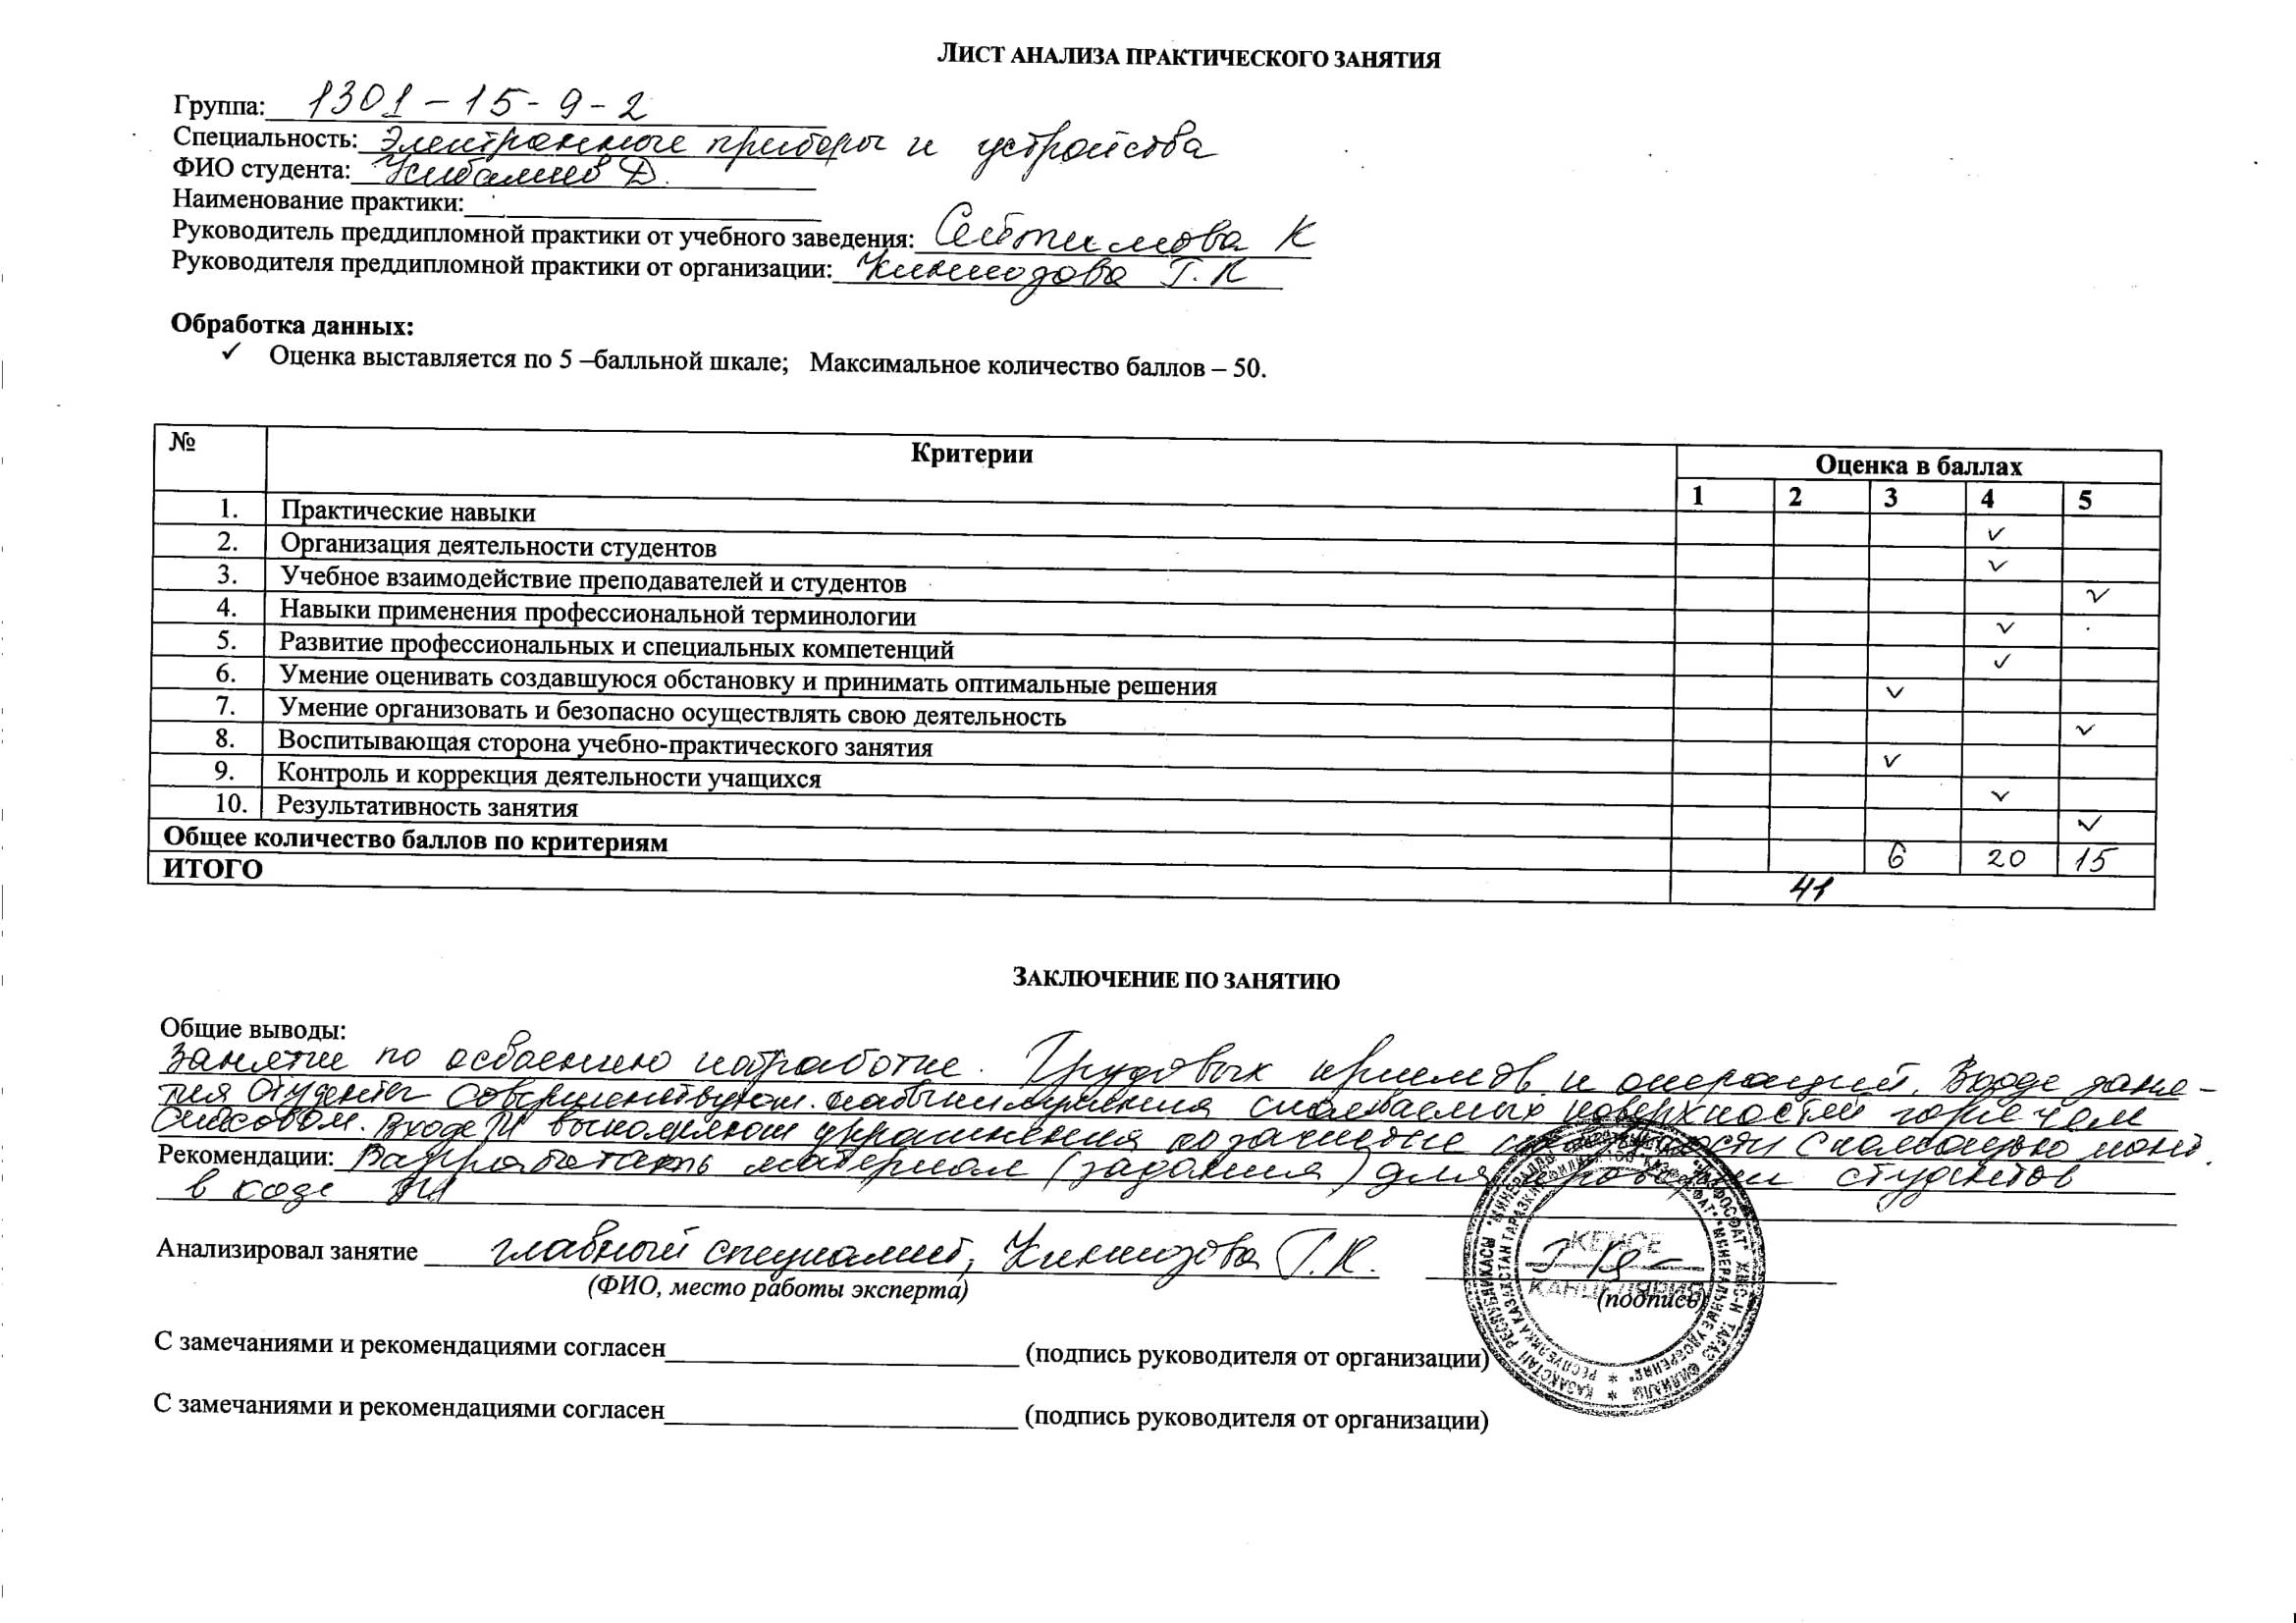 ЛИСТ АНАЛИЗА ПРАКТИЧЕСКОГО ЗАНЯТИЯ
Группа: 1301-15-9-2
Специальность: Электронные приборы и устройства
ФИО студента: Д.
Наименование практики:
Руководитель преддипломной практики от учебного заведения: К
Руководителя преддипломной практики от организации: Т.К
Обработка данных:
✓ Оценка выставляется по 5 –балльной шкале; Максимальное количество баллов – 50.
№ Критерии Оценка в баллах
1 2 3 4 5
1. Практические навыки ✓
2. Организация деятельности студентов ✓
3. Учебное взаимодействие преподавателей и студентов ✓
4. Навыки применения профессиональной терминологии ✓
5. Развитие профессиональных и специальных компетенций ✓
6. Умение оценивать создавшуюся обстановку и принимать оптимальные решения ✓
7. Умение организовать и безопасно осуществлять свою деятельность ✓
8. Воспитывающая сторона учебно-практического занятия ✓
9. Контроль и коррекция деятельности учащихся ✓
10. Результативность занятия ✓
Общее количество баллов по критериям 6 20 15
ИТОГО 41
ЗАКЛЮЧЕНИЕ ПО ЗАНЯТИЮ
Общие выводы:
Занятие по освоению и отработке. Трудовых приемов и операций. В ходе заня-
тия студенты совершенствуют навыки поверхностей горячем
способом. В ходе выполняют упражнения по
Рекомендации: материал (задания) для студентов
в ходе
Анализировал занятие главный специалист, Т.К.
(ФИО, место работы эксперта) (подпись)
КЕҢСЕ
КАНЦЕЛЯРИЯ
С замечаниями и рекомендациями согласен (подпись руководителя от организации)
С замечаниями и рекомендациями согласен (подпись руководителя от организации)